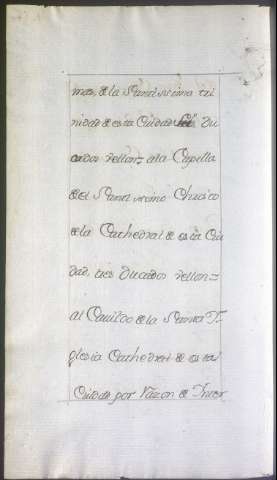 mas, de la Santissima tri
nidad de esta Ciudad Seis Du
cados vellon= a la Capilla
de el Santissimo Christo
de la Cathedral de esta Ciu
dad, tres Ducados vellon=
al Cavildo de la Santa Y-
glesia Cathedral de esta
Ciudad por razon de